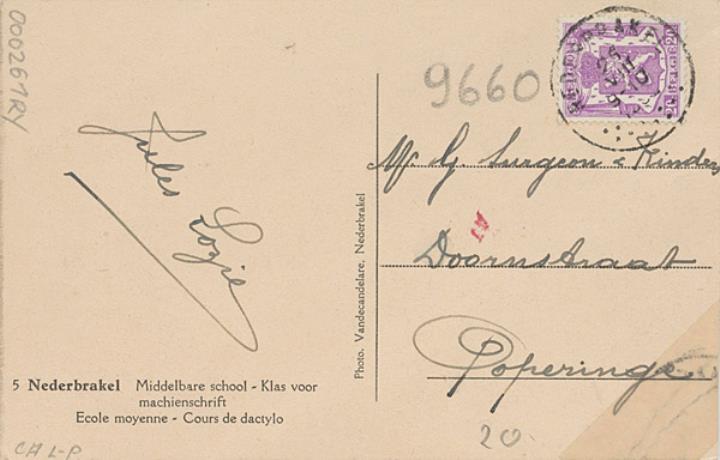 000261RY
9660
BELGIE
20
Jules Lozie
Mr G. Surgeon & Kinders
Doornstraat
Poperinge
Photo. Vandecandelare, Nederbrakel
5 Nederbrakel Middelbare school - Klas voor
machienschrift
Ecole moyenne - Cours de dactylo
20
CH L-P